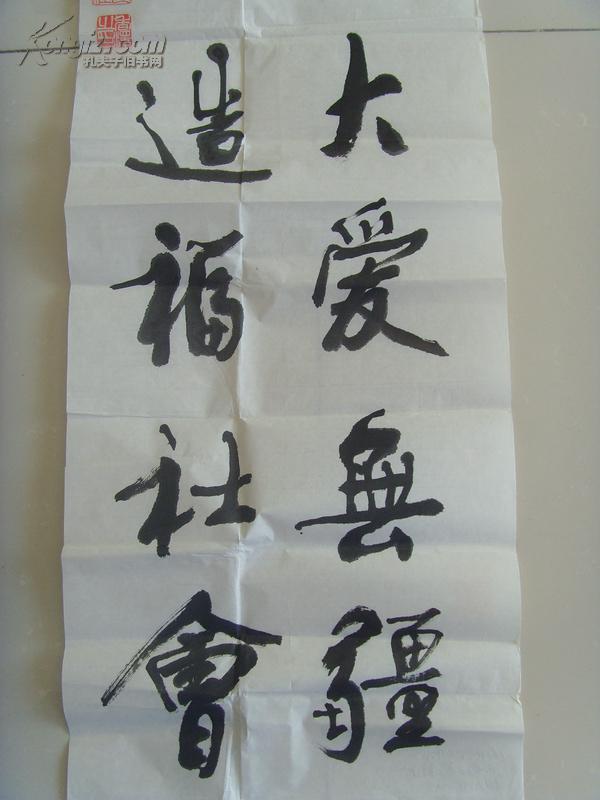 大爱無疆
造福社會
Kongfz.com
孔夫子旧书网